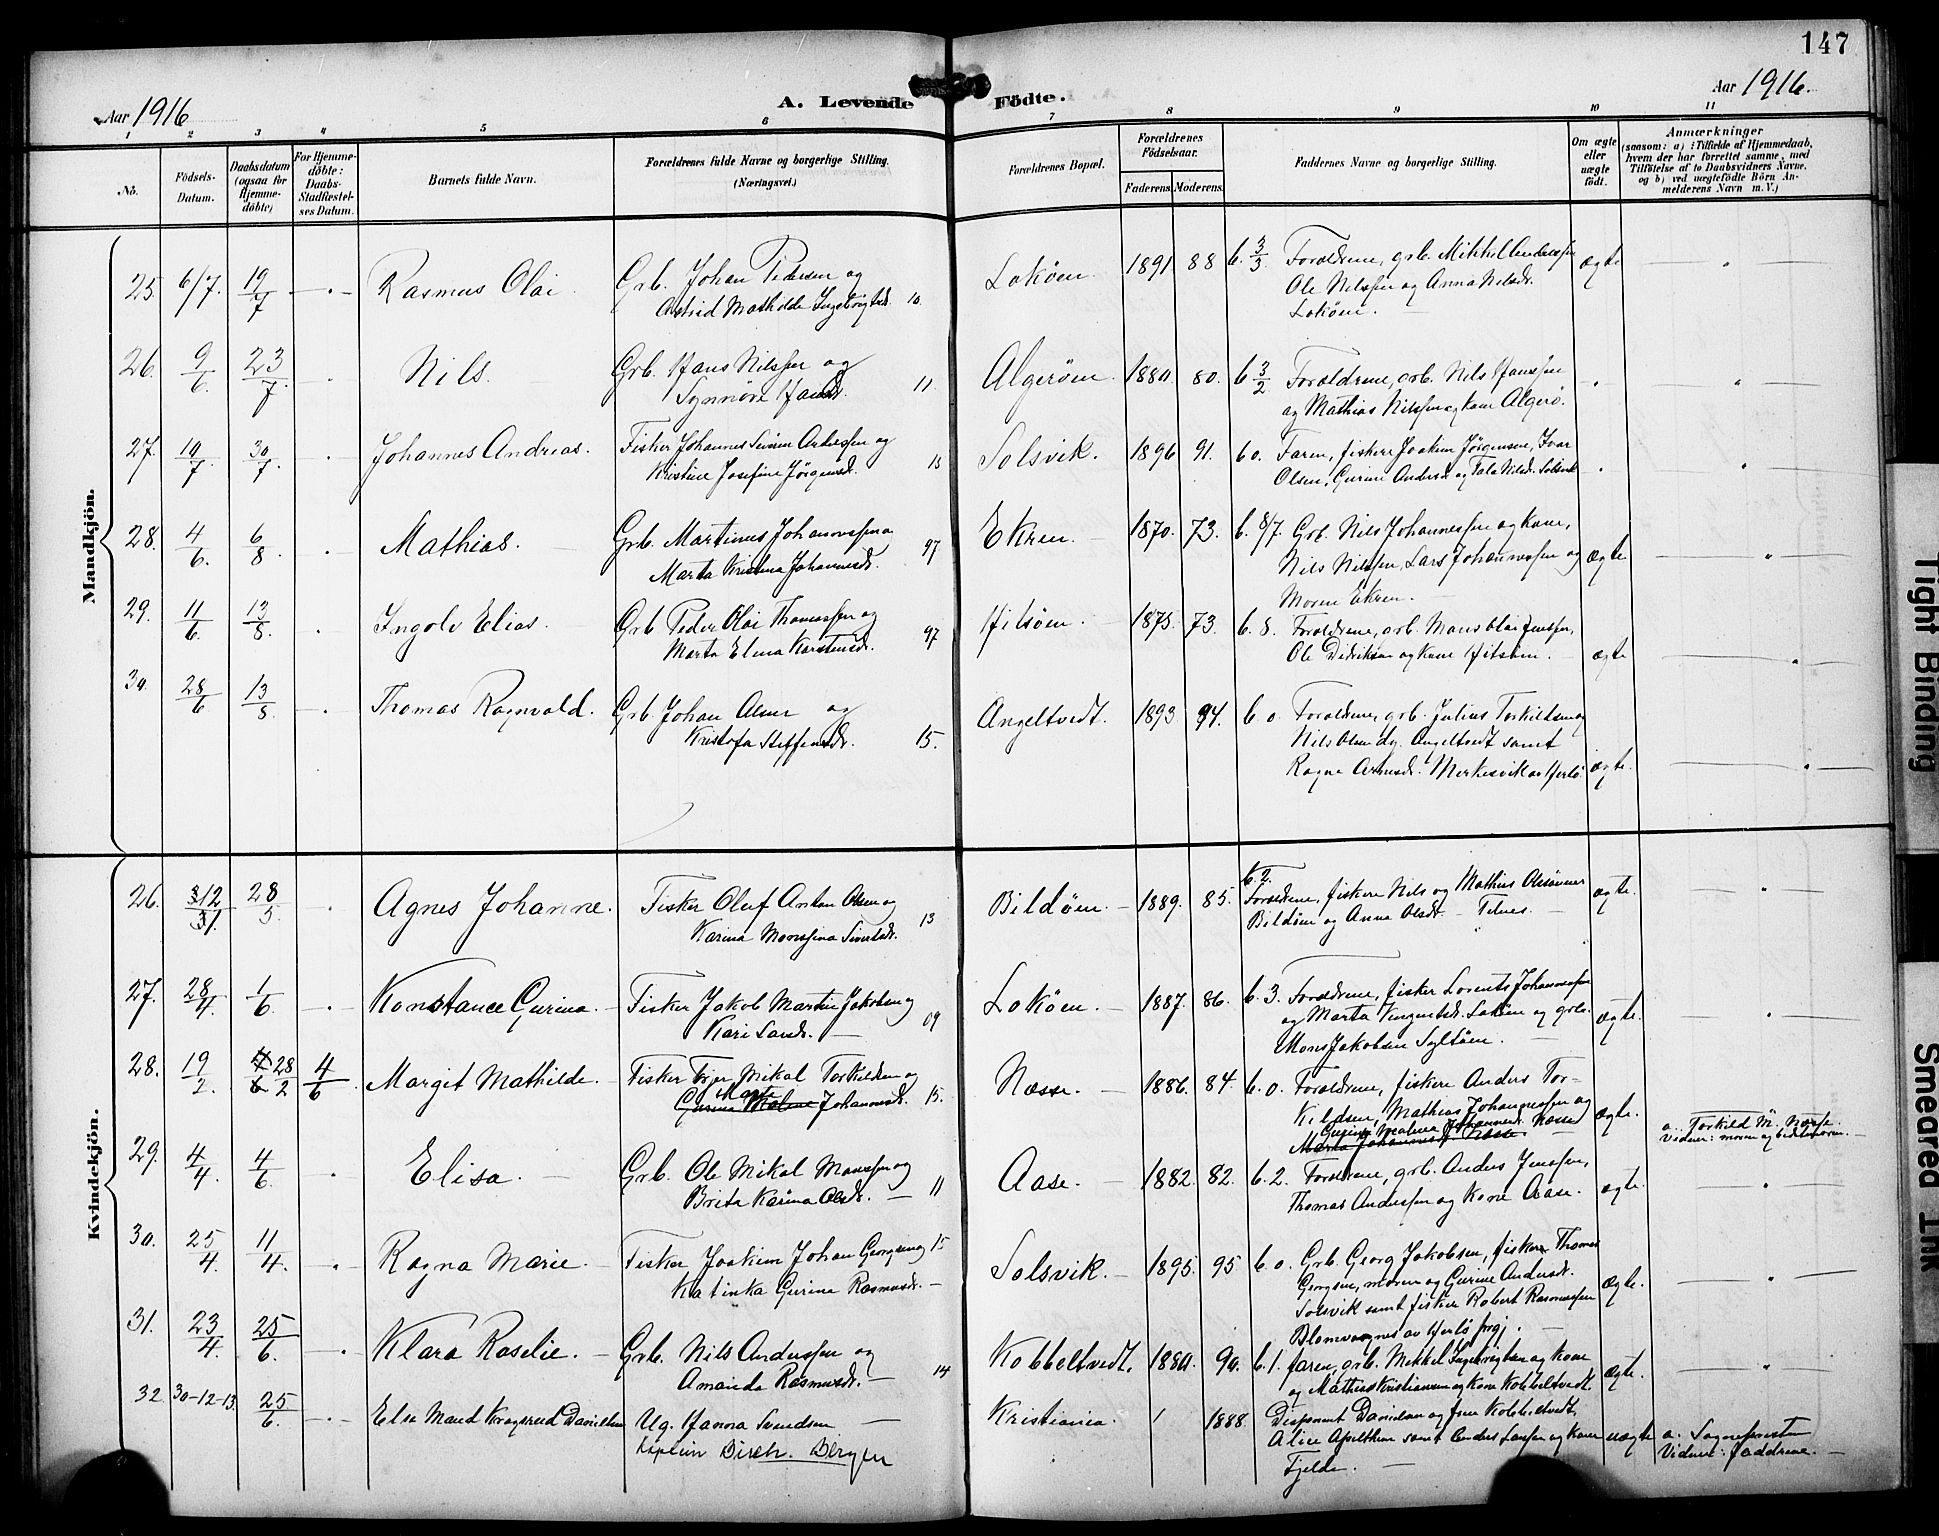 147
Aar 1916
A. Levende Födte.
Aar 1916.
1 2 3 4 5 6 7 8 9 10 11
No.
Födsels-Datum.
Daabsdatum (ogsaa for Hjemme-döbte)
For Hjemme-döbte: Daabs-Stadfæstel-ses Datum.
Barnets fulde Navn.
Forældrenes fulde Navne og borgerlige Stilling. (Næringsvei.)
Forældrenes Bopæl.
Forældrenes Födselsaar.
Faderens. Moderens.
Faddernes Navne og borgerlige Stilling.
Om ægte eller uægte födt.
Anmærkninger
(saasom: a) i Tilfælde af Hjemmedaab,
hvem der har forrettet samme, med
Tilföielse af to Daabsvidners Navne.
og b) ved uægtefödte Börn An-
melderens Navn m. V.)
Mandkjön.
25. 6/7. 19/7 Rasmus Olai. Grb. Johan Pedersen og 10. Loköen. 1891 88 6. 3/3 Forældrene, grb. Mikkel Anderssen ægte
Astrid Mathilde Ingebrigtsd. Ole Nilssen og Anna Nilsd.
Loköen.
26. 9/6. 23/7. Nils. Grb. Hans Nilssen og 11. Algeröen. 1880. 80. 6 3/2 Forældrene, grb. Nils Hanssen
Synnöve Hansd. og Mathias Nilssen og kone Algerö.
27. 19/7. 30/7. Johannes Andreas. Fisker Johannes Andressen og 15 Solsvik. 1896 91. 6 0. Faren, fiskere Joakim Jörgensen, Ivar
Kristine Josefine Jörgensd. Olsen, Gurine Andersd. og Nilsd. Solsvik
28. 4/6. 6/8. Mathias. Grb. Martinus Johannessen o 97 Ekren. 1870. 73. 6. 8/7. Grb. Nils Johannessen og kone, ægte
Marta Kristina Johannesd. Nils Nilssen, Lars Johannessen og
Moren Ekren.
29. 11/6. 13/8. Ingolv Elias. Grb. Peder Olai Thomassen og 97 Hitsöen. 1875. 73. 6. 8. Forældrene, grb. Mons Olai Jenssen,
Marta Elina Karstensd. Ole Didriksen og kone Hitsöen. ægte
30. 28/6 13/8. Thomas Ragnvald. Grb Johan Olsen og Angeltvedt. 1893. 94. 6 0. Forældrene, grb. Julius Torkildsen og
Kristofa Steffensd. 15. Nils Olsen Angeltvedt samt
Ragna Merkesvik av Herlö. ægte.
Kvindekjön.
26. 12/31. 28/5 Agnes Johanne. Fisker Oluf Anton Olsen og 13 Bildöen. 1889. 85. 6.2. ægte.
Karina Monssina Sivertsd. Forældrene, fiskere Nils og Mathias
Bildöen og Anna Olsd. Telnes.
27. 28/4. 1/6. Konstance Gurina. Fisker Jakob Martin Jakobsen og 09 Loköen. 1887. 86. 6. 3. Forældrene, fisker Lorents Johannessen
Kari Larsd. og Marta Loköen og grb. ægte.
Mons Jakobsen Syltöen.
28. 19/2. 28/2 4/6 Margit Mathilde. Fisker Mikal Torkildsen og 15. Næsse. 1886. 84. 6. 0. Forældrene, fiskere Anders Tor-
Marta Gurina Malene Johannesd. kildsen, Mathias Johannessen og ægte.
Gurina Malena Johannesd. Næsse
Marta Johannesd. Næsse
a. Torkild M. Næsse.
Vidner: moren og
29. 4/4. 4/6. Elisa. Grb. Ole Mikal Monssen og 11 Aase. 1882. 82. 6. 2. Forældrene, grb. Anders Jenssen, ægte.
Brita Karina Olsd. Thomas Anderssen og kone Aase.
30. 25/4. 11/4. Ragna Marie. Fisker Joakim Johan Georgsen og 15 Solsvik. 1895. 95 6. 0. Grb. Georg Jakobsen, fisker Thomas
Katinka Gurine Rasmusd. Georgsen, moren og Gurine Andersd. ægte.
Solsvik samt fisker Robert Rasmussen
Blomvaagnes av Herlö prgj.
31. 23/4. 25/6. Klara Roselie. Grb. Nils Anderssen og 14 Kobbeltvedt. 1880. 90. 6. 1. faren, grb. Mikkel Ingebrigtsen og kone
Amanda Rasmusd. og Mathias Kristiansen og kone Kobbeltvedt. ægte.
32. 30-12-13. 25/6. Else Maud Kragsrud Danielsen Ug. Hanna Svendsen Kristiania. 1888. Disponent Danielsen og frue Kobbeltvedt,
kaptein Birch. Bergen Alice samt Anders Larsen og kone uægte
Fjelde.
a. Sognepresten
Vidner: Faddrene.
Tight Binding
Smeared Ink